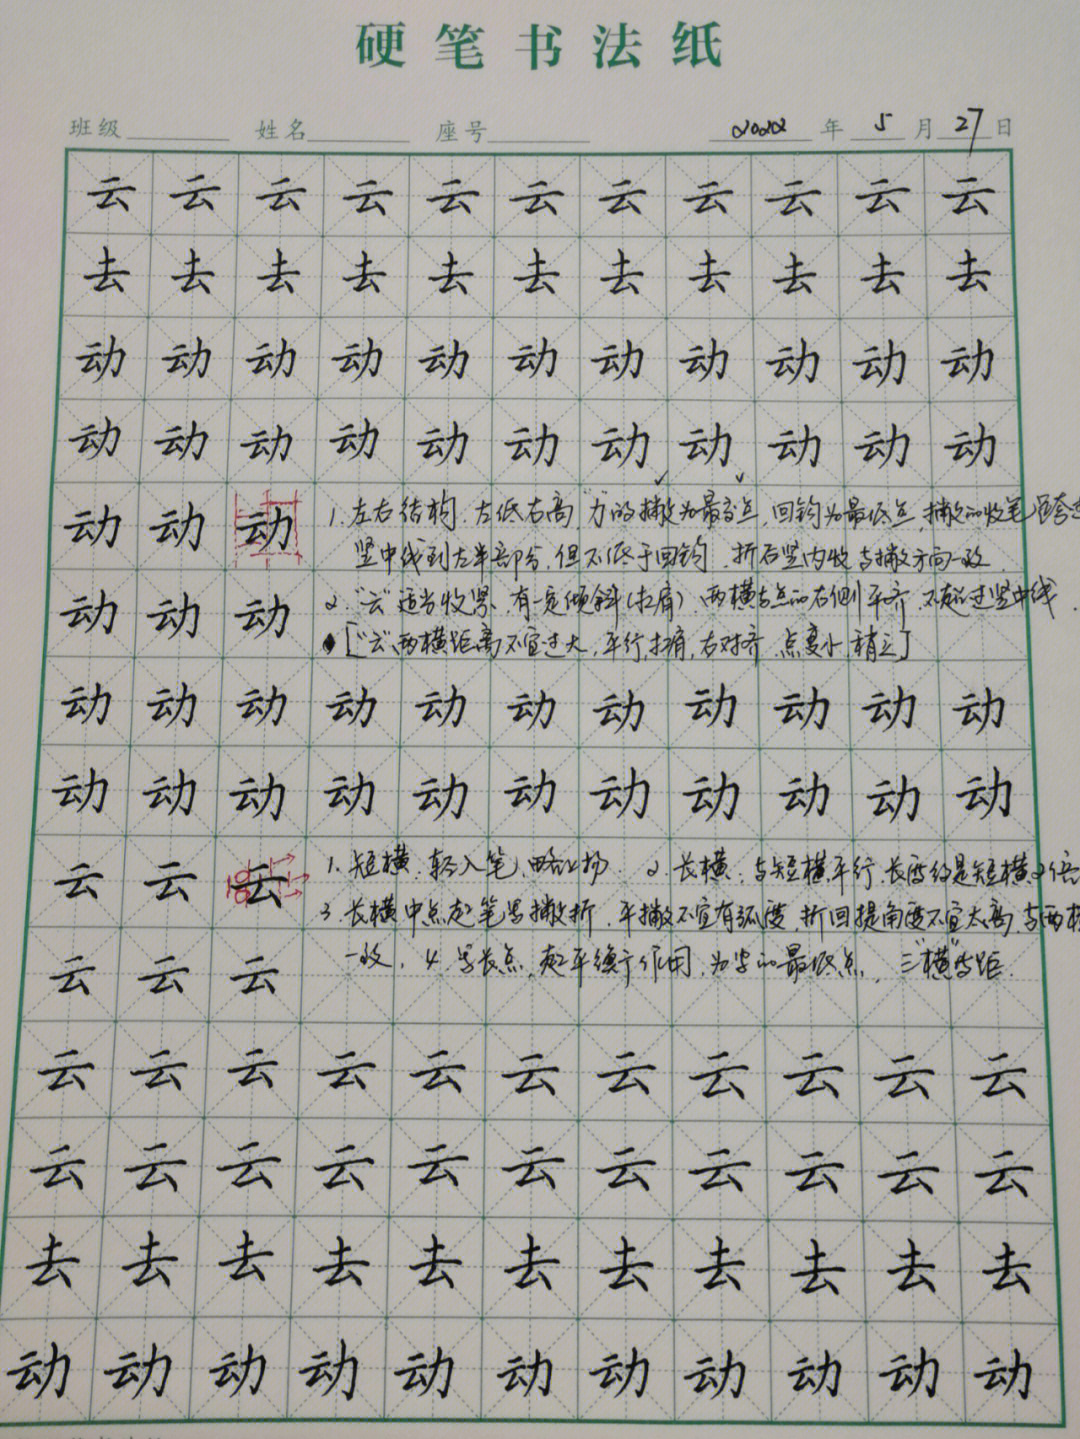 硬笔书法纸
班级 姓名 座号 2022 年 5 月 27 日
云云云云云云云云云云云
去去去去去去去去去去去
动动动动动动动动动动动
动动动动动动动动动动动
动动动 1. 左右结构,左低右高,"力"的撇为最高点,回钩为最低点,撇的收笔
竖中线到左半部分,但不低于回钩,折后竖内收与撇方向一致.
动动动 2. "云"适当收紧、有一定倾斜(扛肩) 两横与点的右侧平齐,不超过竖中线.
["云"两横距离不宜过大,平行,扛肩,右对齐,点变小,稍立]
动动动动动动动动动动动
动动动动动动动动动动动
云云云 1. 短横,轻入笔,略上扬. 2. 长横,与短横平行,长度约是短横2倍
3. 长横中点起笔写撇折,平撇不宜有弧度,折回提角度不宜太高,与两横
云云云 一致. 4. 写长点,起平衡作用,为字的最低点,三"横"等距.
云云云云云云云云云云云
云云云云云云云云云云云
去去去去去去去去去去去
动动动动动动动动动动动